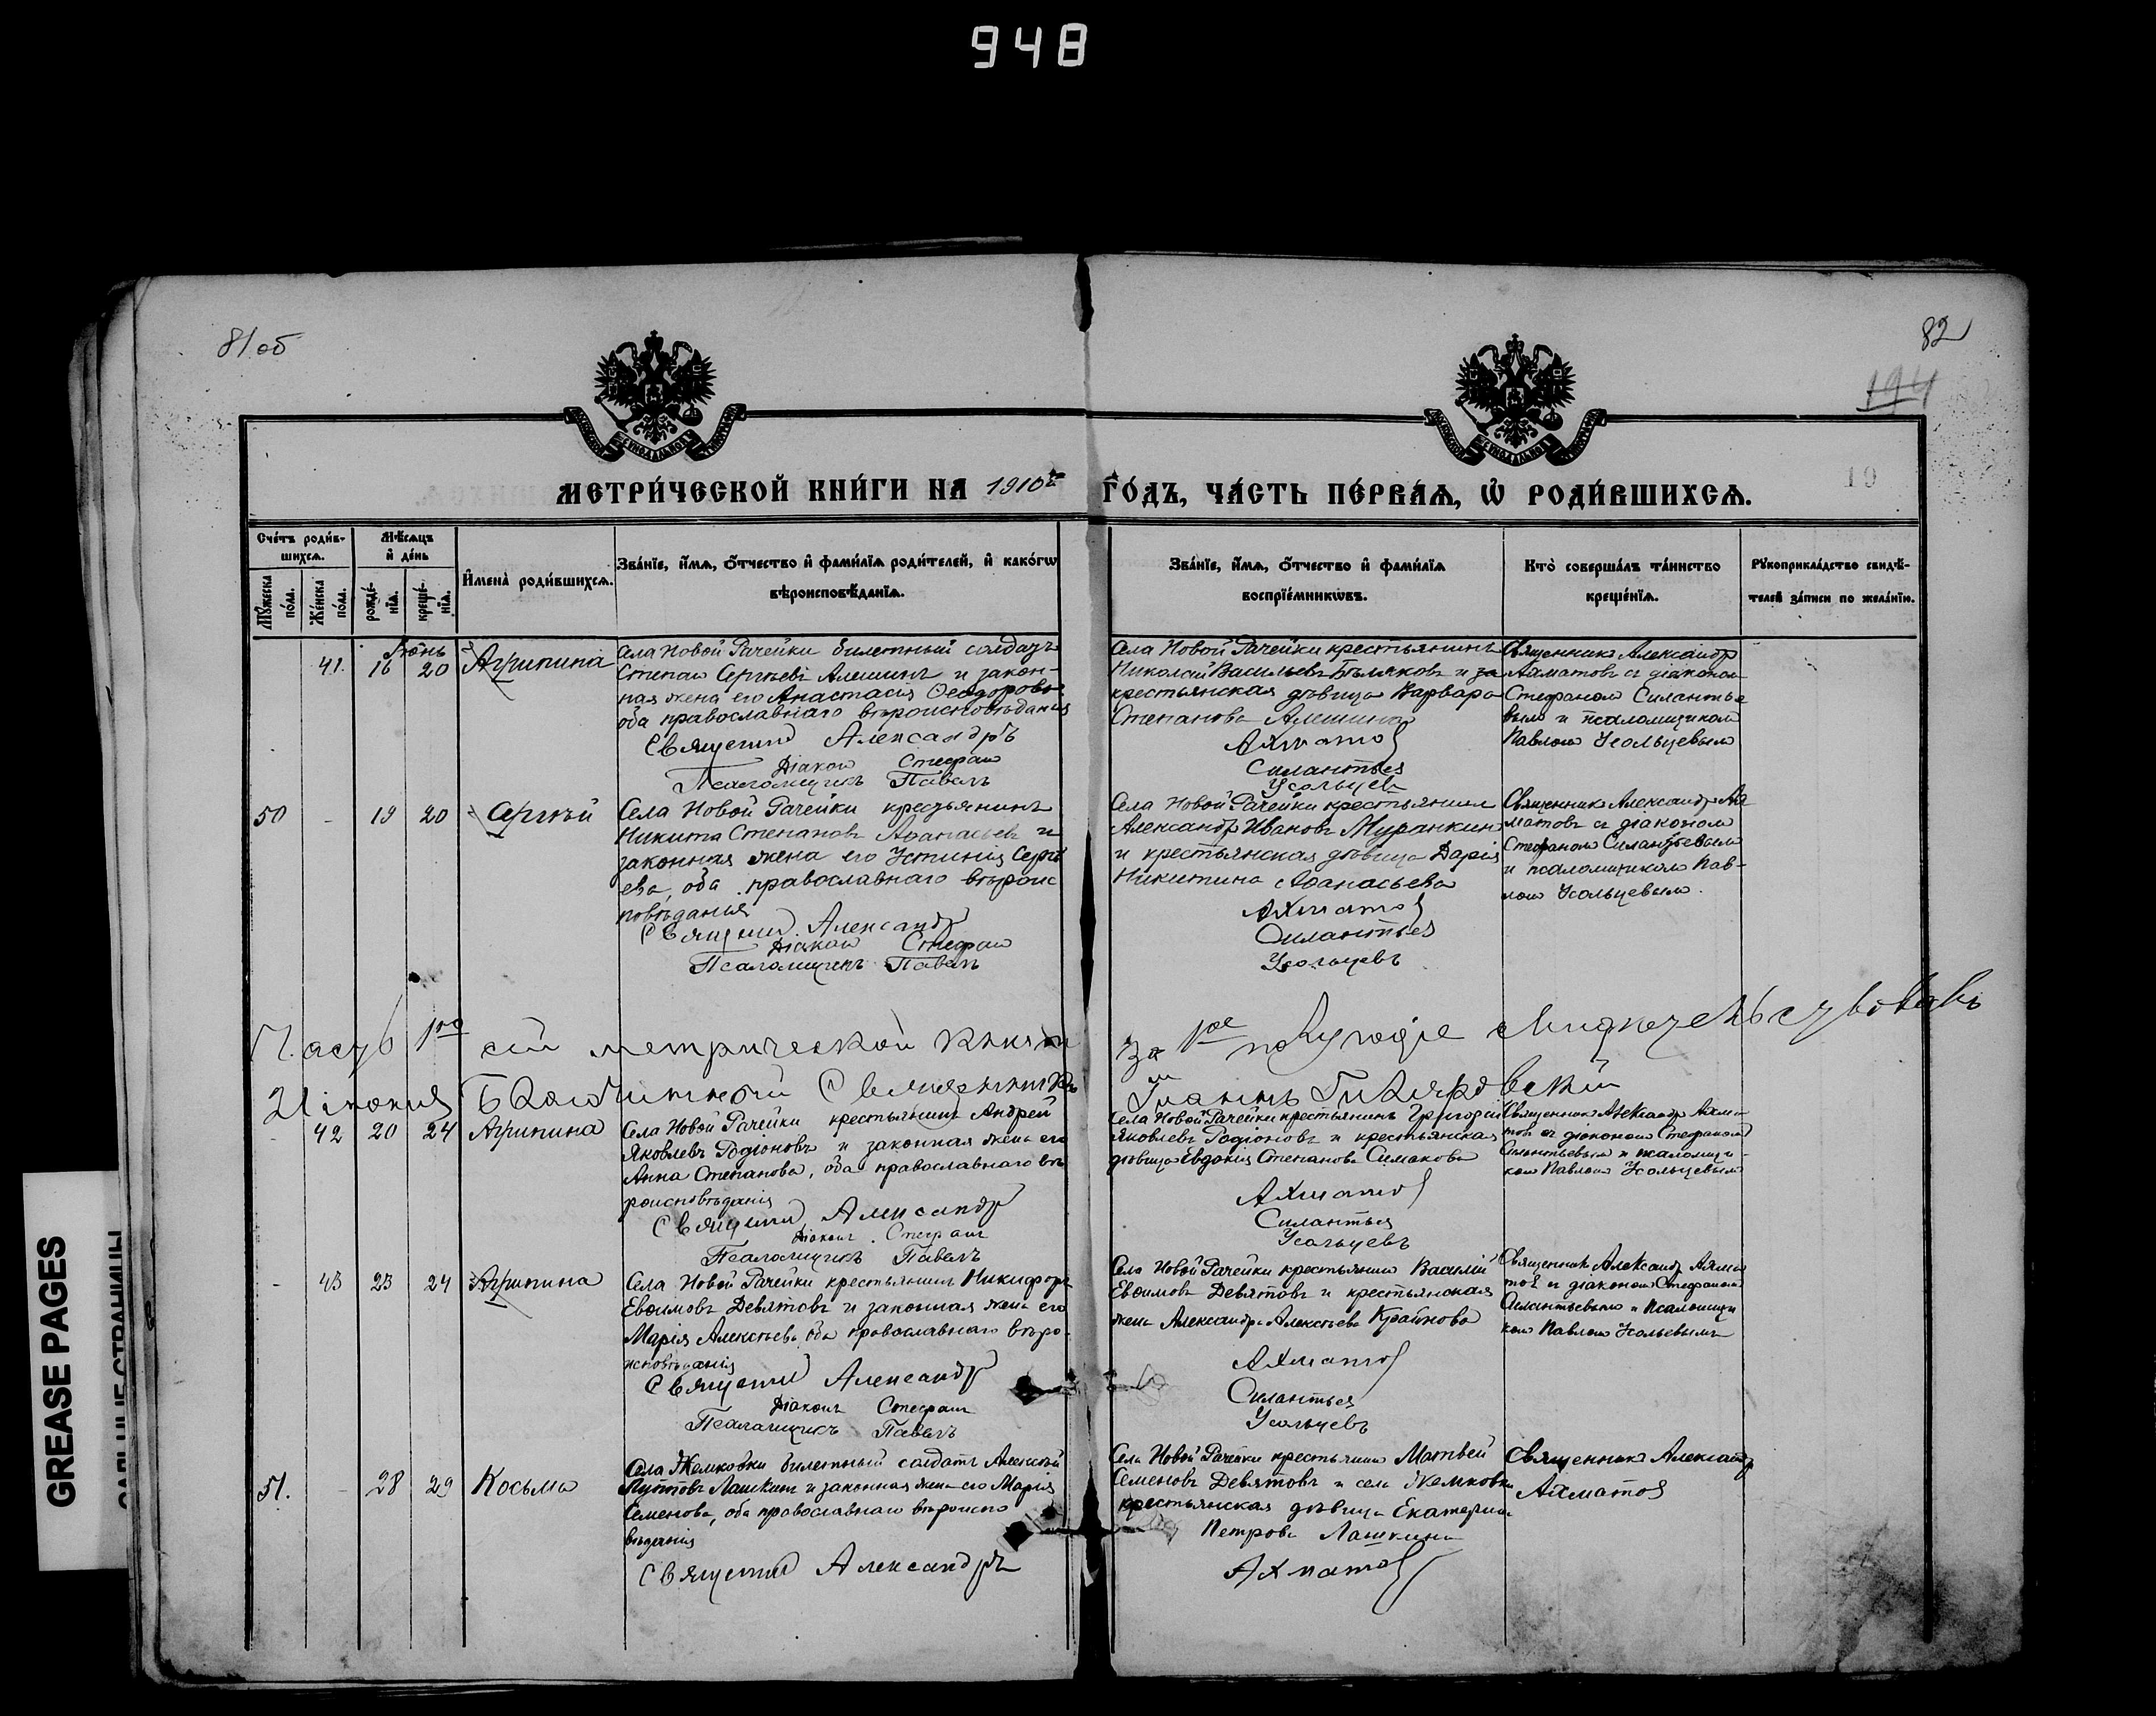 948
81 об
82
194
19
МЕТРИ́ЧЕСКОЙ КНИ́ГИ НА 1910й
ГО́ДЪ, ЧА́СТЬ ПЕ́РВАѦ, Ѡ РОДИ́ВШИХСѦ.
Сче́тъ роди́в-
шихсѧ.
Му́жеска по́ла.
Же́нска по́ла.
Мѣ́сѧцъ
и де́нь
рожде́-
нїѧ.
креще́-
нїѧ.
Имена̀ роди́вшихсѧ.
Зва́нїе, и́мѧ, о́тчество и фами́лїѧ роди́телей, и како́гѡ
вѣроисповѣ́данїѧ.
Зва́нїе, и́мѧ, о́тчество и фами́лїѧ
воспрїе́мникѡвъ.
Кто̀ соверша́лъ та́инство
креще́нїѧ.
Рꙋкоприкла́дство свидѣ́-
телей за́писи по жела́нїю.
Іюнь
41. 16 20 Агрипина
Села Новой Рачейки билетный солдатъ
Степан Сергѣевъ Алешинъ и закон-
ная жена его Анастасія Ѳеодорова
оба православнаго вѣроисповѣданія
Священник Александръ
Діакон Стефан
Псаломщикъ Павелъ
Села Новой Рачейки крестьянинъ
Николай Васильевъ Бѣляковъ и
крестьянская дѣвица Варвара
Степанова Алешина
Ахматов
Силантьев
Усольцев
Священникъ Александр
Ахматовъ съ діаконом
Стефаном Силантье
вым и псаломщиком
Павлом Усольцевым
50 - 19 20 Сергѣй
Села Новой Рачейки крестьянинъ
Никита Степановъ Аѳанасьев и
законная жена его Устинія Сергѣ
ева, оба православнаго вѣроис
повѣданья
Священник Александр
Діакон Стефан
Псаломщикъ Павелъ
Села Новой Рачейки крестьянин
Александр Иванов Муранкин
и крестьянская дѣвица Дарія
Никитина Аѳанасьева
Ахматов
Силантьев
Усольцевъ
Священникъ Александр Ах
матовъ съ діаконом
Стефаном Силантьевым
и псаломщиком Пав-
лом Усольцевым.
Часть 1ю сей метрической книги
за 1ое полугодіе свидѣтельствовалъ
21 іюня Благочинный Священникъ
Іоаннъ
- 42 20 24 Агрипина
Села Новой Рачейки крестьянинъ Андрей
Яковлевъ Родіоновъ и законная жена его
Анна Степанова, оба православнаго вѣ
роисповѣданія
Священник Александр
Діакон Стефан
Псаломщикъ Павелъ
Села Новой Рачейки крестьянинъ Григорій
Яковлевъ Родіоновъ и крестьянская
дѣвица Евдокія Степанова Симакова
Ахматов
Силантьев
Усольцевъ
Священник Александр Ахма-
тов съ діаконом Стефаном
Силантьевым и псаломщи-
ком Павлом Усольцевым
- 43 23 24 Агрипина
Села Новой Рачейки крестьянин Никифоръ
Евѳимовъ Девятовъ и законная жена его
Марія Алексѣева, оба православнаго вѣро-
исповѣданія
Священник Александр
Діакон Стефан
Псаломщикъ Павелъ
Села Новой Рачейки крестьянин Василій
Евѳимовъ Девятовъ и крестьянская
жена Александра Алексѣева Крайнова
Ахматов
Силантьев
Усольцевъ
Священник Александр Ахма
тов съ діаконом Стефаном
Силантьевым и псаломщи
ком Павлом Усольевымъ
51. - 28 29 Косьма
Села Жемковки билетный солдатъ Алексѣй
Лашкин и законная жена его Марія
Семенова, оба православнаго вѣроиспо
вѣданія
Священник Александръ
Села Новой Рачейки крестьянин Матвей
Семеновъ Девятовъ и села Жемковки
крестьянская дѣвица Екатерина
Петрова Лашкина
Ахматов
Священникъ Александр
Ахматов
GREASE PAGES